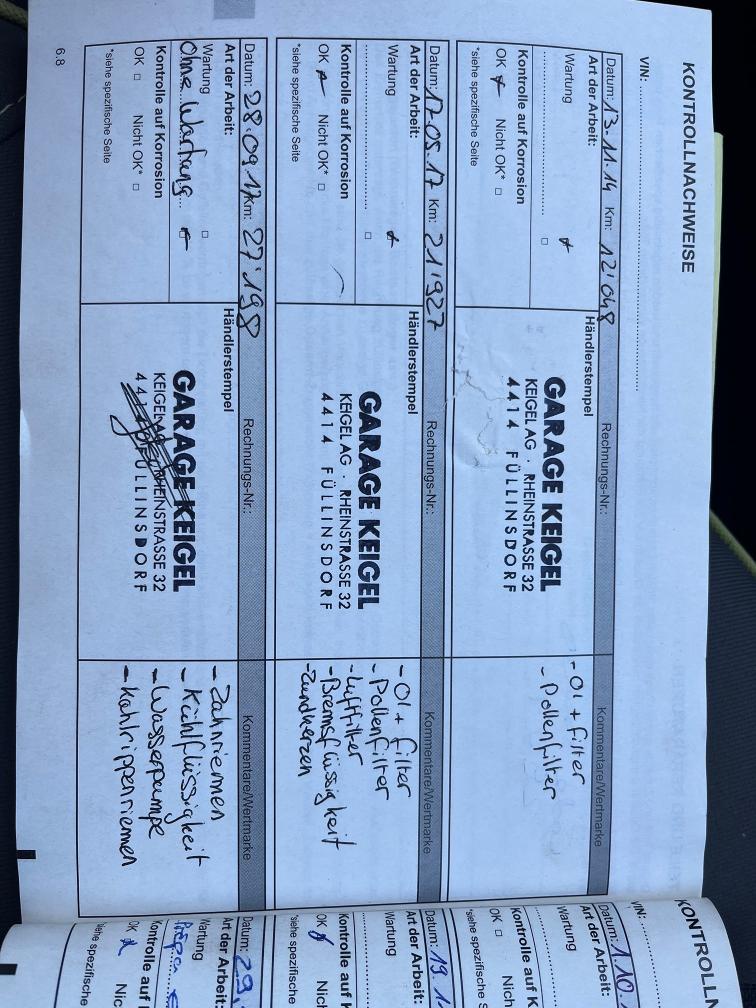 KONTROLLNACHWEISE
VIN:
Datum: 13.11.14 Km: 12'048
Rechnungs-Nr.:
Kommentare/Wertmarke
Art der Arbeit:
Wartung
OK Nicht OK*
Kontrolle auf Korrosion
*siehe spezifische Seite
Händlerstempel
GARAGE KEIGEL
KEIGEL AG . RHEINSTRASSE 32
4414 FÜLLINSDORF
- Öl + filter
- Pollenfilter
Datum: 17.05.17 Km: 21'927
Rechnungs-Nr.:
Kommentare/Wertmarke
Art der Arbeit:
Wartung
Kontrolle auf Korrosion
OK Nicht OK*
*siehe spezifische Seite
Händlerstempel
GARAGE KEIGEL
KEIGEL AG . RHEINSTRASSE 32
4414 FÜLLINSDORF
- Öl + filter
- Pollenfilter
- Luftfilter
- Bremsflüssigkeit
- Zündkerzen
Datum: 28.09.17 Km: 27'198
Rechnungs-Nr.:
Kommentare/Wertmarke
Art der Arbeit:
Wartung
Ohne Wartung
Kontrolle auf Korrosion
OK Nicht OK*
*siehe spezifische Seite
Händlerstempel
GARAGE KEIGEL
KEIGEL AG . RHEINSTRASSE 32
4414 FÜLLINSDORF
- Zahnriemen
- Kühlflüssigkeit
- Wasserpumpe
- Keilrippenriemen
6.8
KONTROLLN
VIN:
Datum: 1.10
Art der Arbeit:
Wartung
Kontrolle auf K
OK Nich
*siehe spezifische S
Datum: 19.1
Art der Arbeit:
Wartung
Kontrolle auf K
OK Nich
*siehe spezifische
Datum: 29.
Art der Arbeit:
Wartung
Kontrolle auf
OK Nic
*siehe spezifische